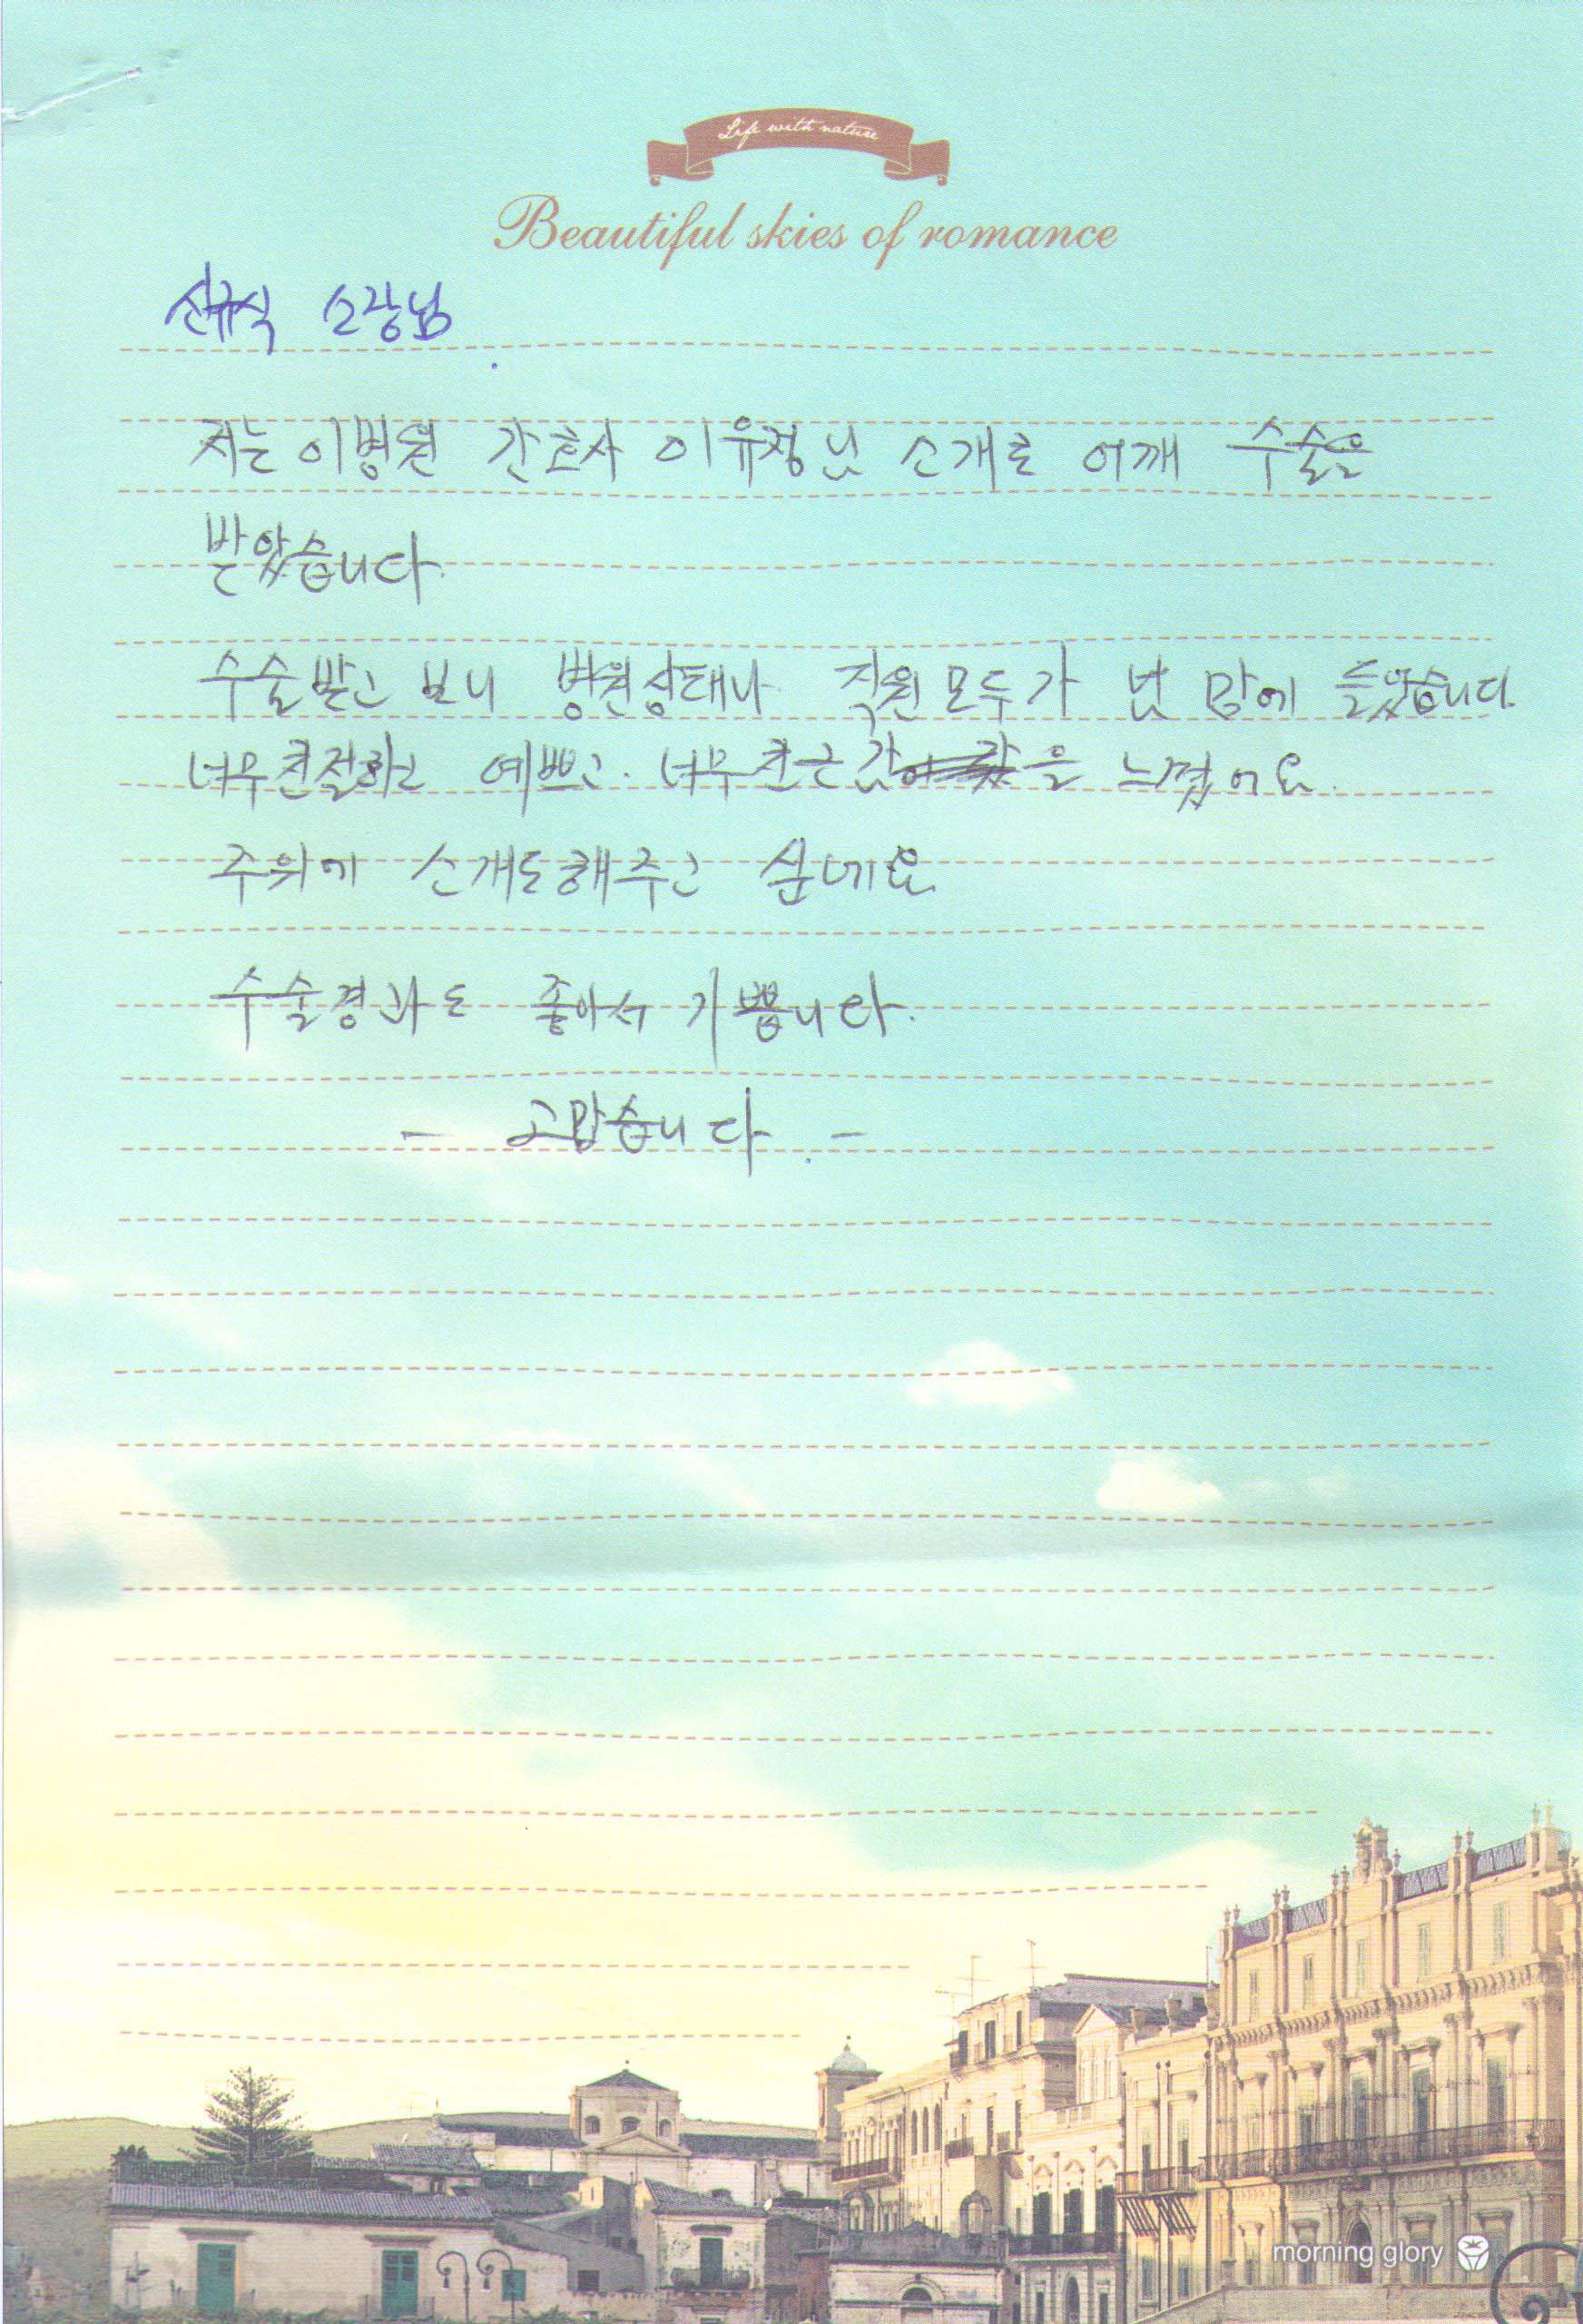 Life with nature
Beautiful skies of romance
신규식 소장님
저는 이병원 간호사 이유정님 소개로 어깨 수술을
받았습니다.
수술받고 보니 병원상태나 직원모두가 넘 맘에 들었습니다.
너무친절하고 예쁘고. 너무친근감을 느꼈어요.
주위에 소개도해주고 싶네요
수술경과도 좋아서 기쁩니다.
- 고맙습니다. -
morning glory